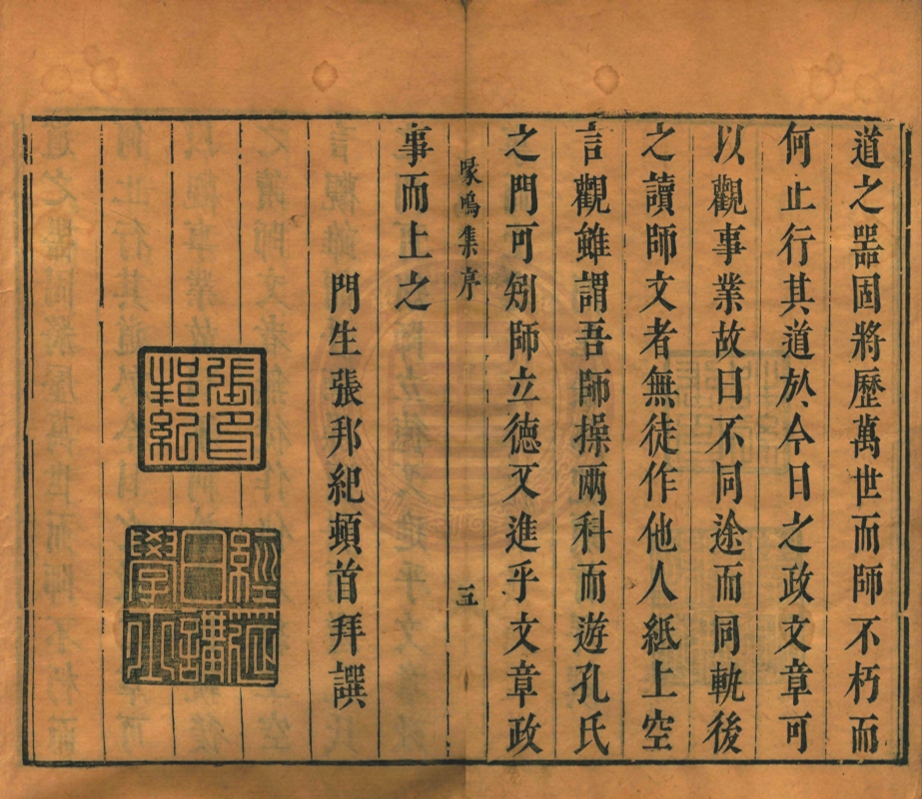 道之器固將歷萬世而師不朽而
何止行其道於今日之政文章可
以觀事業故曰不同途而同軌後
之讀師文者無徒作他人紙上空
言觀雖謂吾師操兩科而遊孔氏
之門可矧師立德又進乎文章政
喙鳴集序
五
事而上之
門生張邦紀頓首拜譔
張印
邦紀
經筵
日講
學士